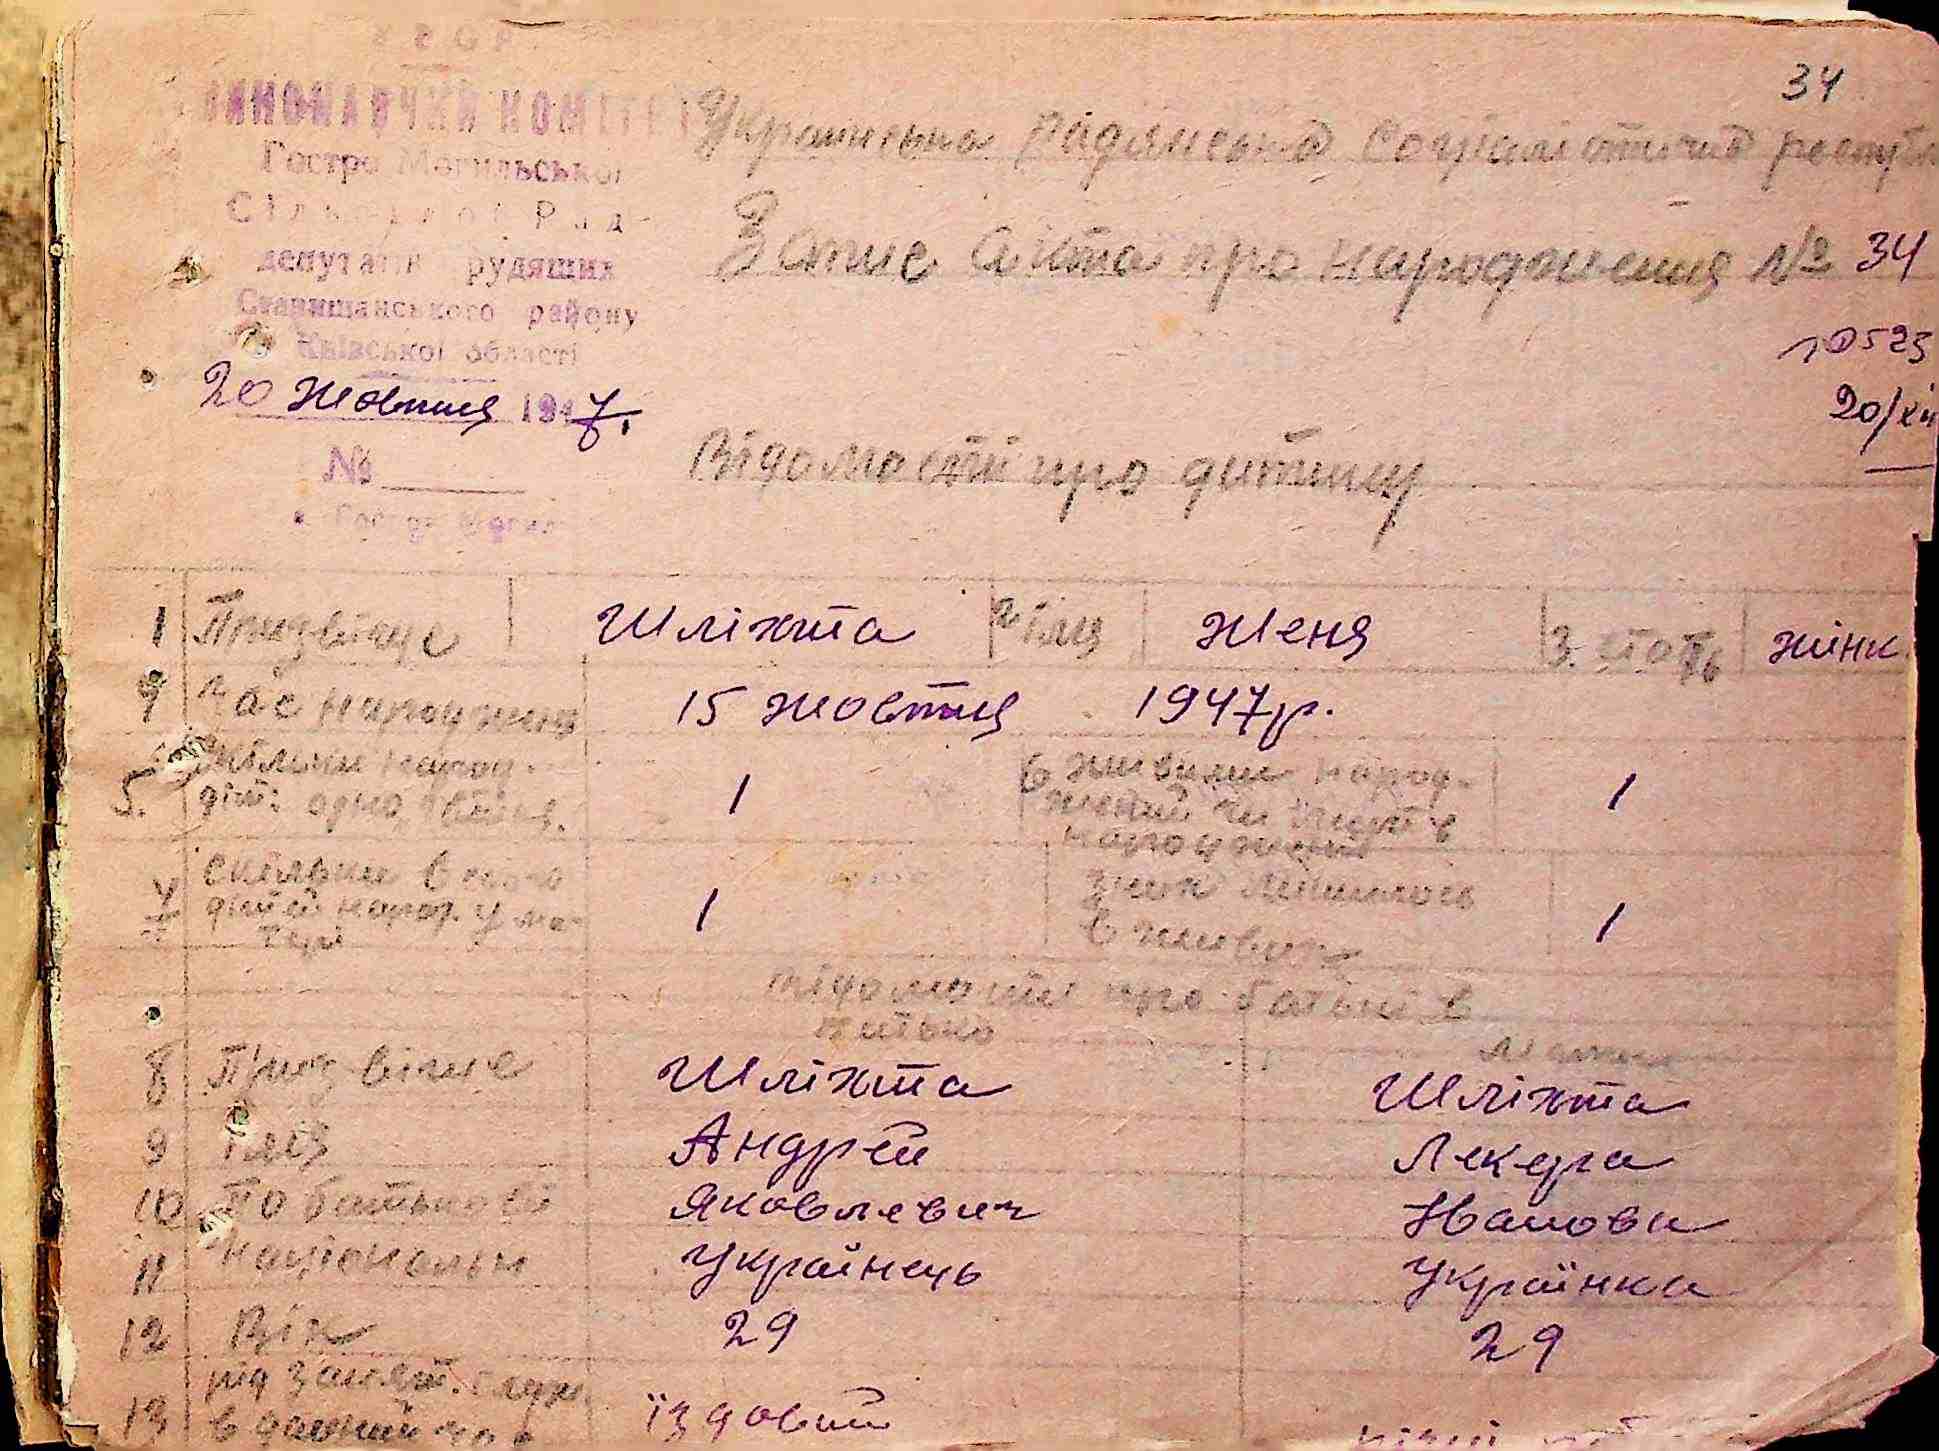 34
УСОР
ВИКОНАВЧИЙ КОМІТЕТ
Гостро Могильської
Сільської Рад
депутатів трудящих
Ставищанського району
Київської області
20 жовтня 1947
№
Українська Радянська Соціалістична республ
Запис акта про народження № 34
10523
20/XII
Відомості про дитину
1 Призвіще Шліхта 2 Імя Женя 3. стать жінк
4 Час народжения 15 жовтня 1947р.
5. Скільки народ. діт: одно, двійня. 1 6 живими народжений чи мертв народжений 1
7 скільки всього дітей народ. у матері 1 з них лишилось в живих 1
відомости про батьків
батько мати
8 Призвіще Шліхта Шліхта
9 Імя Андрей Лекера
10 По батькові Яковлевич Іванови
11 Національн Українець Українка
12 Вік 29 29
13 рід занят. в даний час їздовий